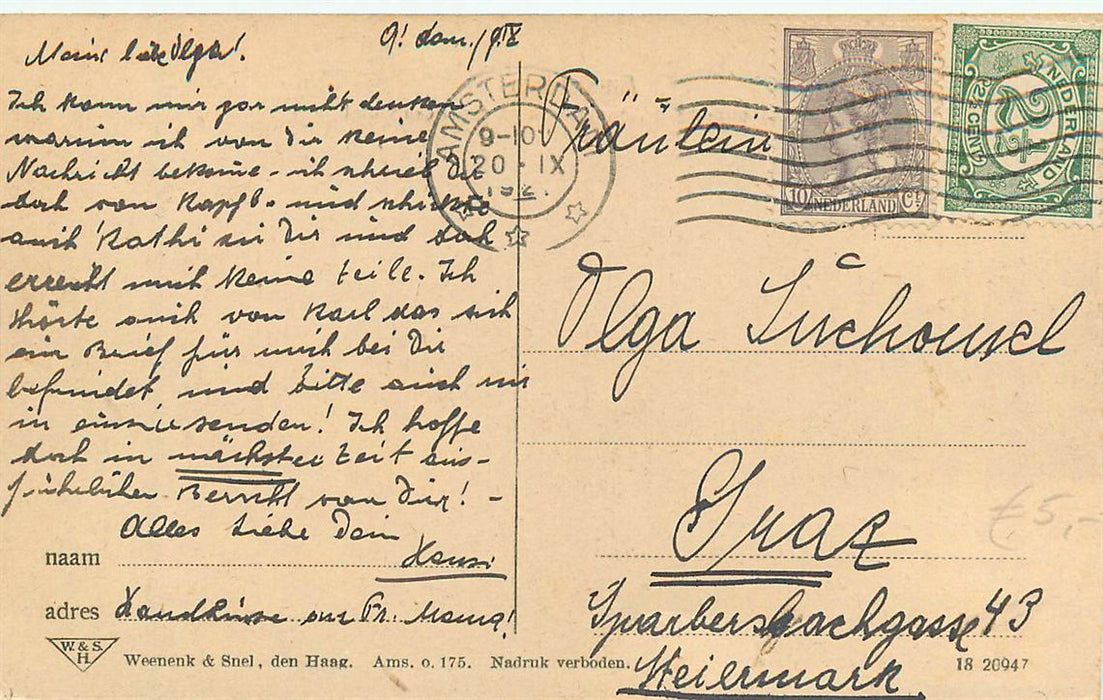 Mein liebe Olga!
A! dam, 19.IX
Ich kann mir gar nicht denken
warum ich von Dir keine
Nachricht bekome - ich schrieb Dir
doch von Kapfb. und schickte
auch Kathi zu Dir und doch
erreicht mich keine Zeile. Ich
hörte auch von Karl das sich
ein Brief für mich bei Dir
befindet und bitte auch mir
ihn einzusenden! Ich hoffe
doch in nächster Zeit aus-
führlichen Bericht von Dir! -
Alles Liebe Dein
Hansi
naam
adres Handküsse an Fr. Mama!
W. & S.
H.
Weenenk & Snel, den Haag. Ams. o. 175. Nadruk verboden.
18 20947
AMSTERDAM
9-10
20 · IX
192
10 NEDERLAND Ct
NEDERLAND
2½
2½ CENT
Fräulein
Olga
Graz
Sparbersbachgasse 43
Steiermark
£5,-